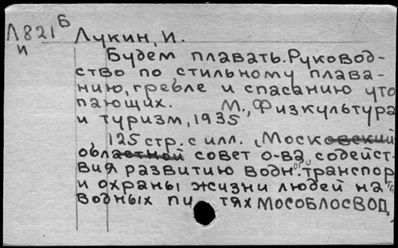 Л821 Б
и
Лукин, И.
Будем плавать. Руковод-
ство по стильному плава-
нию, гребле и спасанию уто
пающих. М., Физкультура
и туризм, 1935
125 стр. с илл. (Московский
областной совет о-ва содейст-
вия развитию водн. транспор
и охраны жизни людей на
водных пу тях МОСОБЛОСВОД